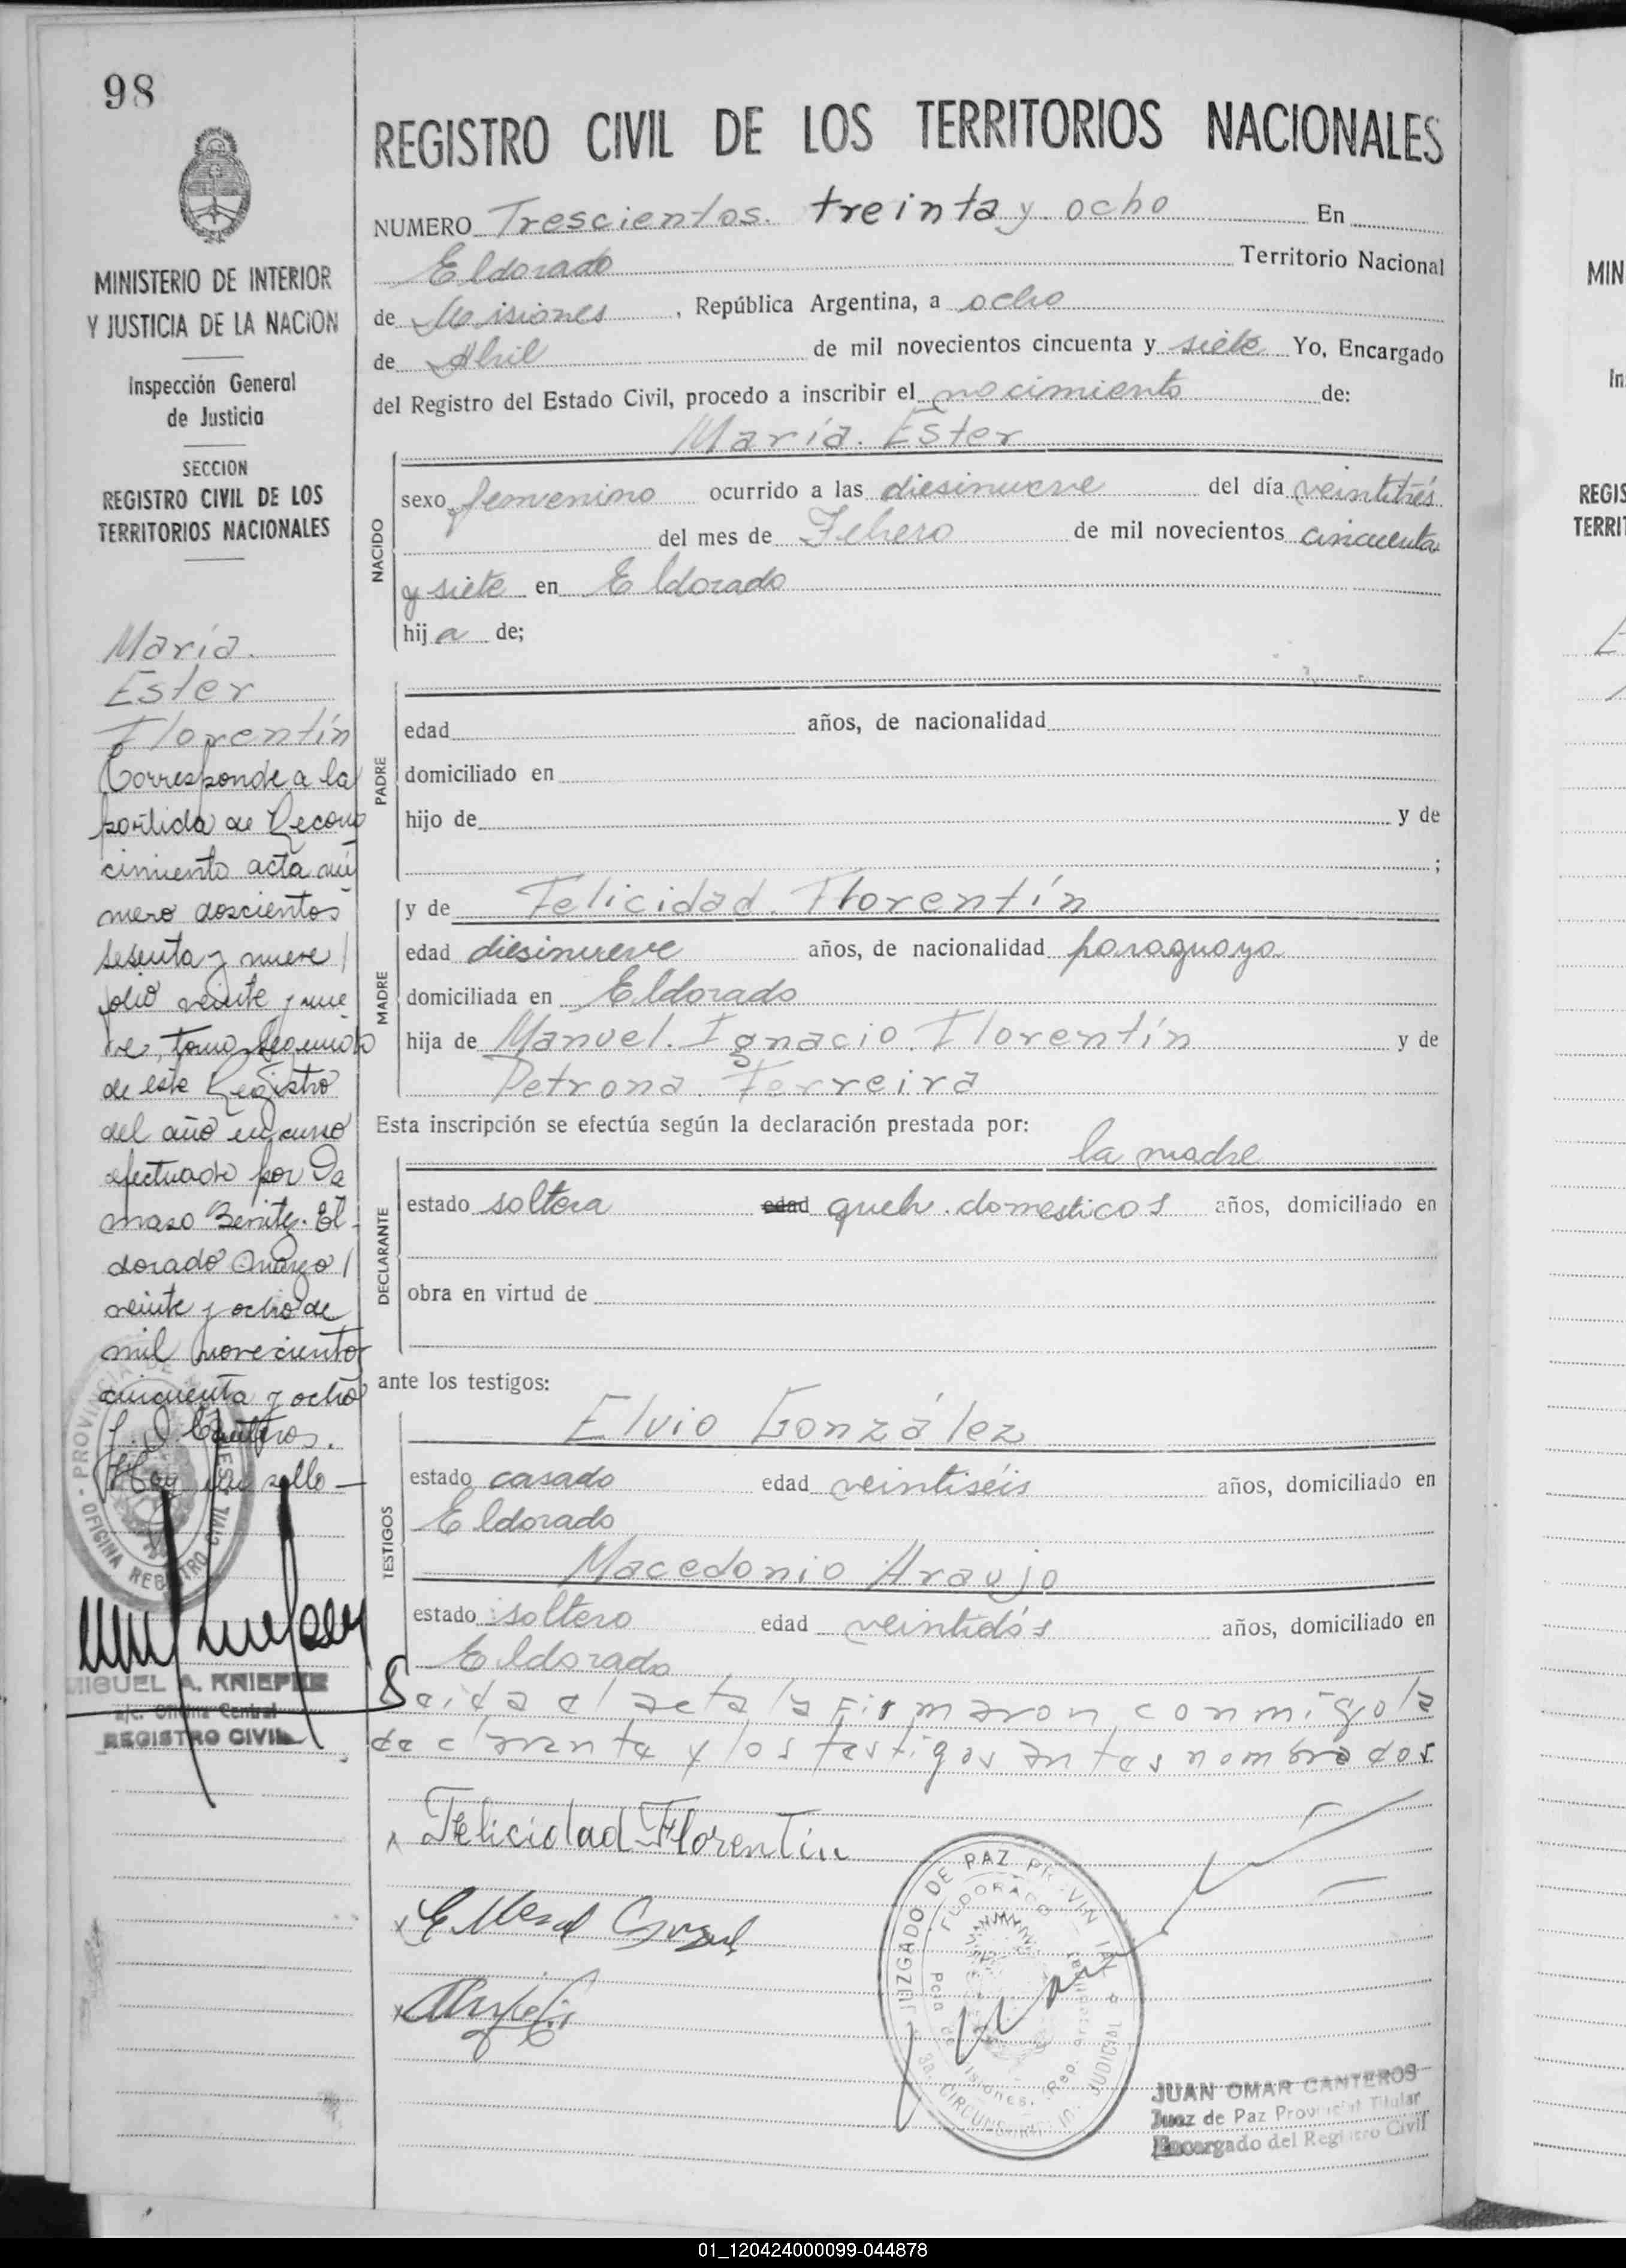 98
REGISTRO CIVIL DE LOS TERRITORIOS NACIONALES
NUMERO Trescientos. treinta y ocho En
Eldorado Territorio Nacional
de Misiones, República Argentina, a ocho
de Abril de mil novecientos cincuenta y siete Yo, Encargado
del Registro del Estado Civil, procedo a inscribir el nacimiento de:
María. Ester
NACIDO
sexo femenino ocurrido a las diesinueve del día veintitrés
del mes de Febrero de mil novecientos cincuenta
y siete en Eldorado
hija de;
PADRE
edad años, de nacionalidad
domiciliado en
hijo de y de
;
MADRE
y de Felicidad. Florentín
edad diesinueve años, de nacionalidad paraguaya
domiciliada en Eldorado
hija de Manuel. Ignacio. Florentín y de
Petrona. Ferreira
Esta inscripción se efectúa según la declaración prestada por:
la madre
DECLARANTE
estado soltera edad queh. domesticos años, domiciliado en
obra en virtud de
ante los testigos:
TESTIGOS
Elvio González
estado casado edad veintiséis años, domiciliado en
Eldorado
Macedonio Araujo
estado soltero edad veintidós años, domiciliado en
Eldorado
Leida el acta la firmaron conmigo la
declarante y los testigos antes nombrados
Felicidad Florentin
JUZGADO DE PAZ PROVINCIAL
ELDORADO
Pcia de Misiones. Rep.
3a. CIRCUNSCRIPCION JUDICIAL
JUAN OMAR CANTEROS
Juez de Paz Provincial Titular
Encargado del Registro Civil
MINISTERIO DE INTERIOR
Y JUSTICIA DE LA NACION
Inspección General
de Justicia
SECCION
REGISTRO CIVIL DE LOS
TERRITORIOS NACIONALES
María.
Ester
Florentín
Corresponde a la
partida de Recono
cimiento acta nú
mero doscientos
sesenta y nueve /
folio veinte y nue
ve, tomo segundo
de este Registro
del año en curso
efectuado por Da
maso Benitez. El-
dorado Marzo /
veinte y ocho de
mil novecientos
cincuenta y ocho
J. O. Canteros.
Hay un sello —
PROVINCIA DE
OFICINA REGISTRO CIVIL
MIGUEL A. KNIEPER
a/c. Oficina Central
REGISTRO CIVIL
MIN
In
REGIS
TERRIT
01_120424000099-044878